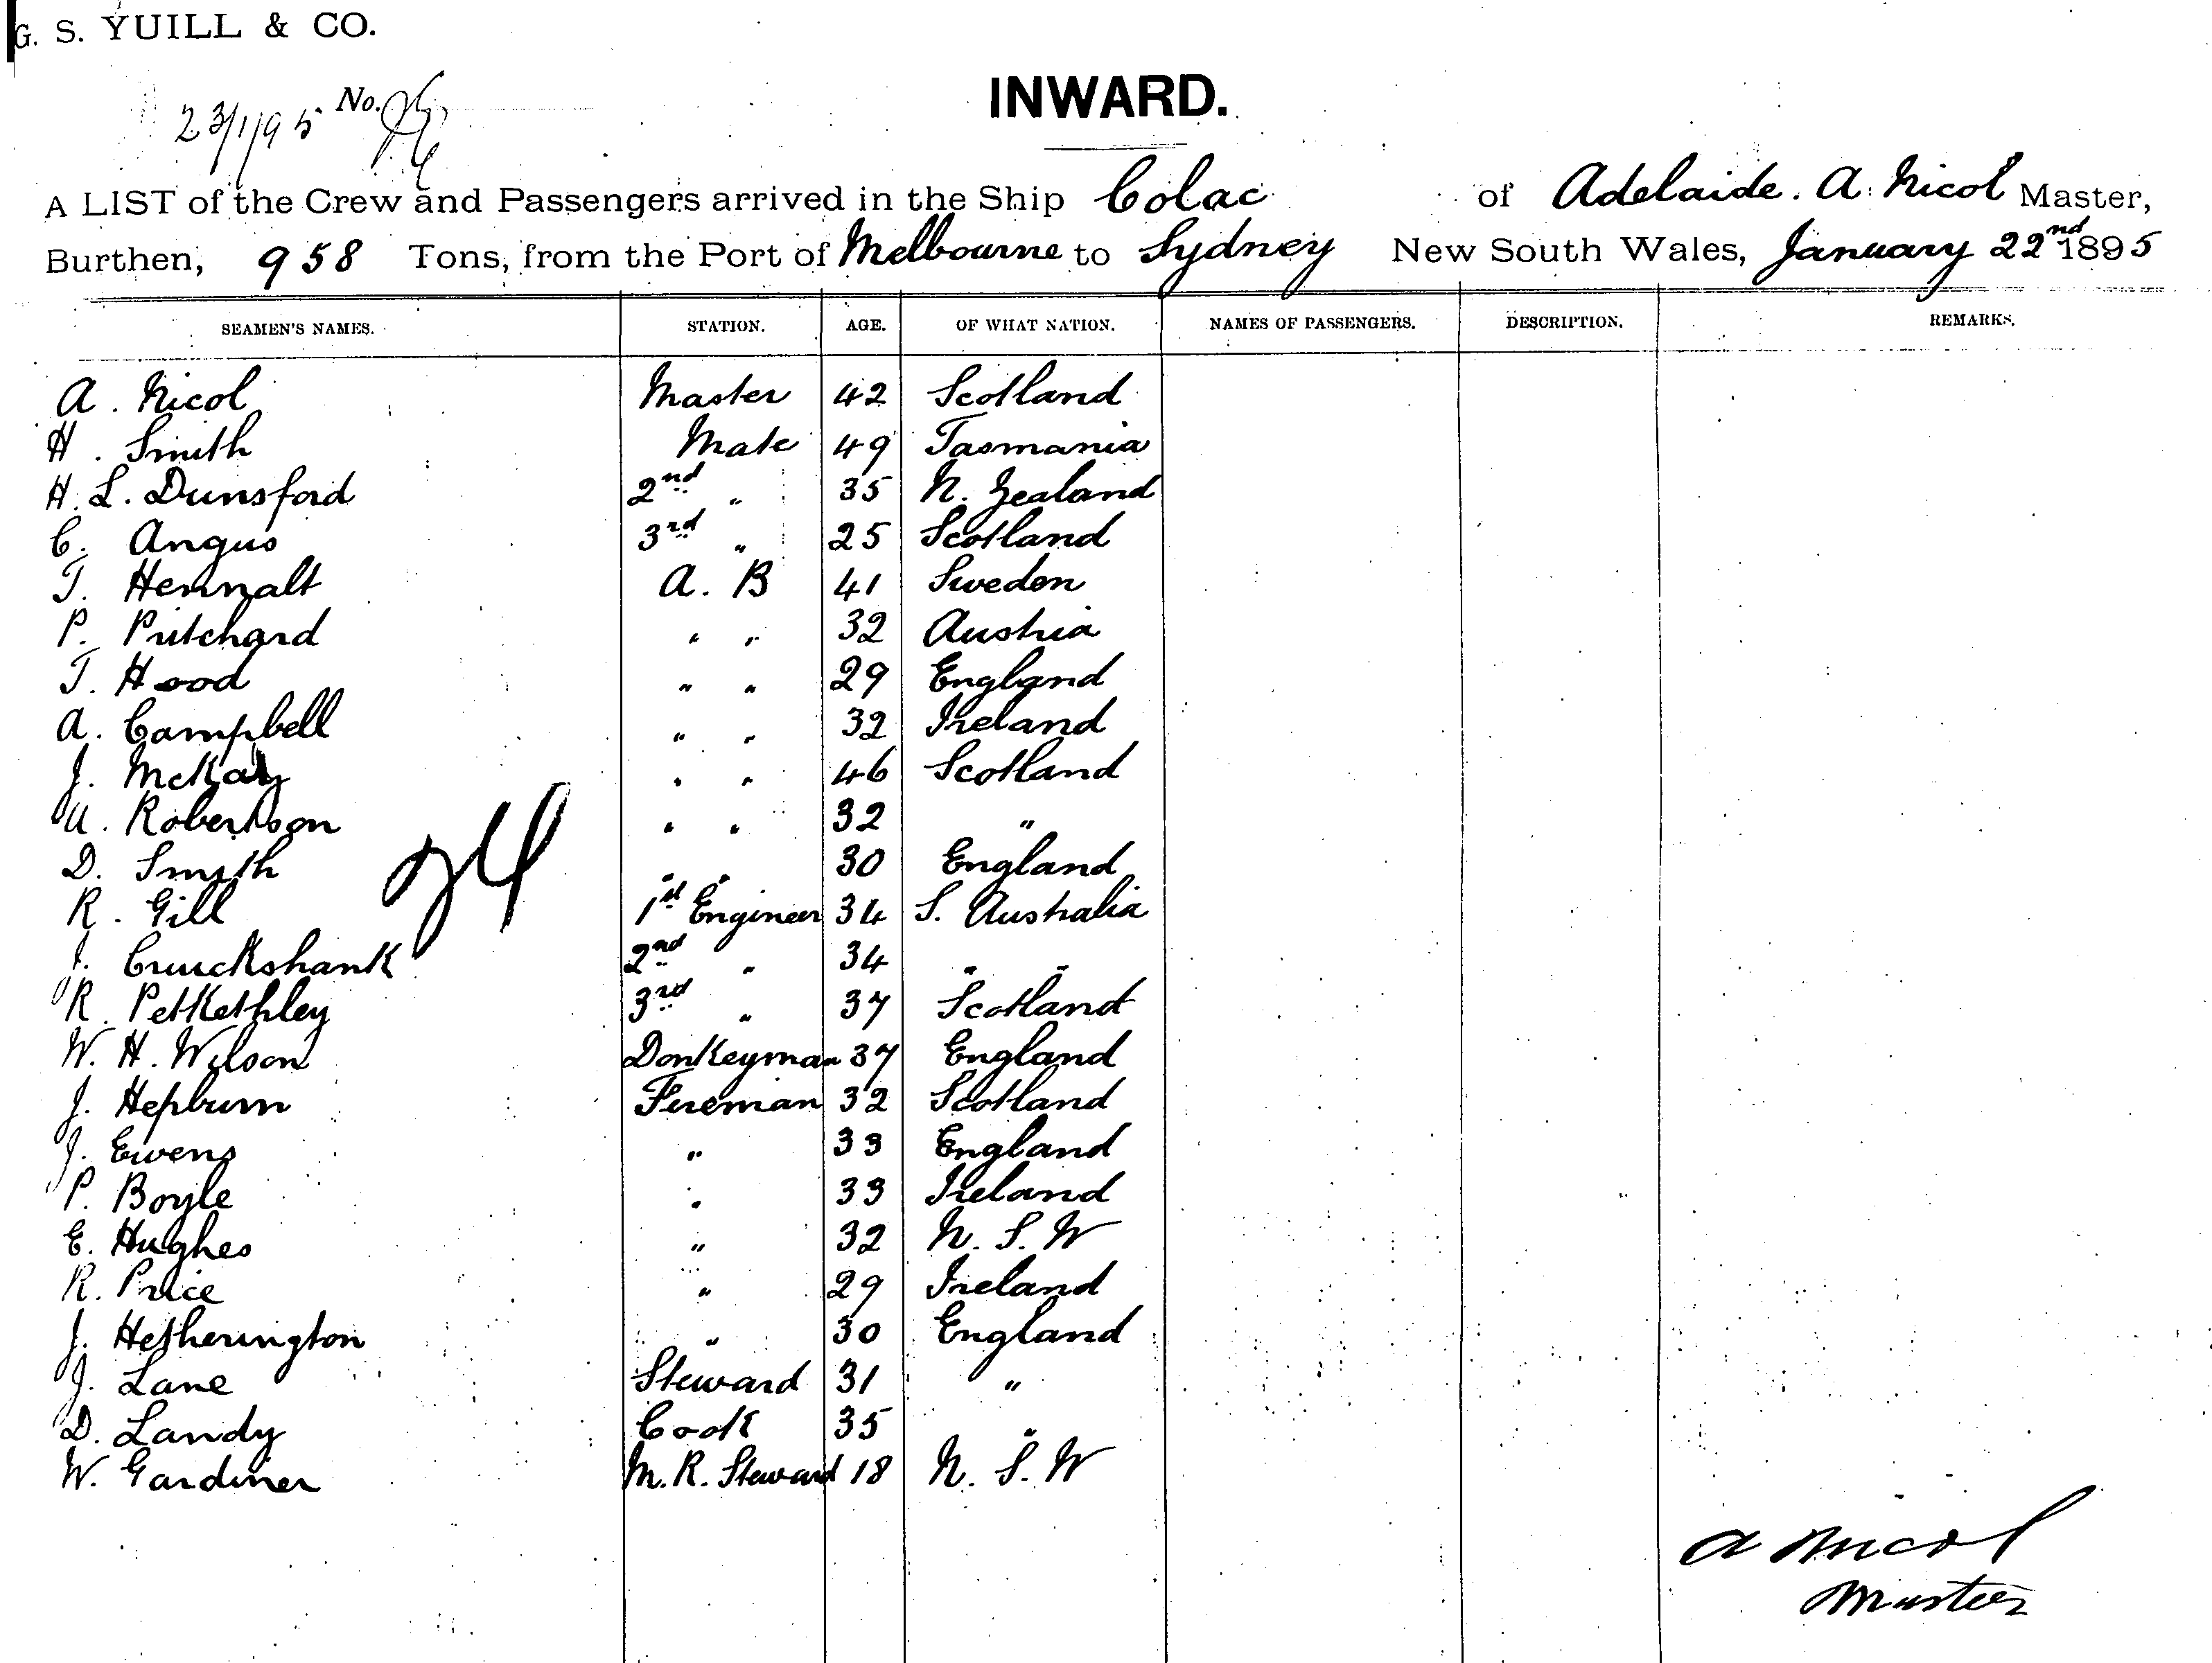 G. S. YUILL & CO.
INWARD.
23/1/95 No.
A LIST of the Crew and Passengers arrived in the Ship Colac of Adelaide. A. Nicol Master,
Burthen, 958 Tons, from the Port of Melbourne to Sydney New South Wales, January 22nd 1895
SEAMEN'S NAMES. STATION. AGE. OF WHAT NATION. NAMES OF PASSENGERS. DESCRIPTION. REMARKS.
A. Nicol Master 42 Scotland
H. Smith Mate 49 Tasmania
H. L. Dunsford 2nd " 35 N. Zealand
C. Angus 3rd " 25 Scotland
T. Hennalt A. B 41 Sweden
P. Pritchard " " 32 Austria
T. Hood " " 29 England
A. Campbell " " 32 Ireland
J. McKay " " 46 Scotland
A. Robertson " " 32 "
D. Smyth " " 30 England
R. Gill 1st Engineer 34 S. Australia
J. Cruickshank 2nd " 34 " "
R. Petkethley 3rd " 37 Scotland
W. H. Wilson Donkeyman 37 England
J. Hepburn Fireman 32 Scotland
J. Ewens " 33 England
P. Boyle " 33 Ireland
E. Hughes " 32 N. S. W
R. Price " 29 Ireland
J. Hetherington " 30 England
J. Lane Steward 31 "
D. Landy Cook 35 "
W. Gardiner M. R. Steward 18 N. S. W
A Nicol
Master